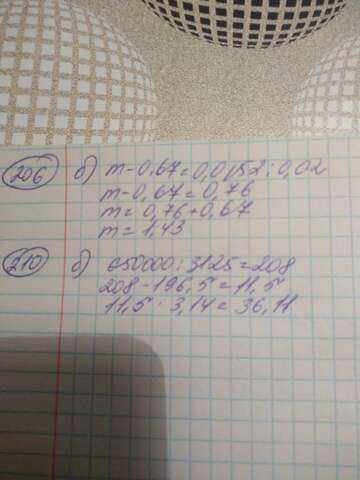 206 б) m - 0,67 = 0,0152 : 0,02
m - 0,67 = 0,76
m = 0,76 + 0,67
m = 1,43
210 б) 650000 : 3125 = 208
208 - 196,5 = 11,5
11,5 · 3,14 = 36,11